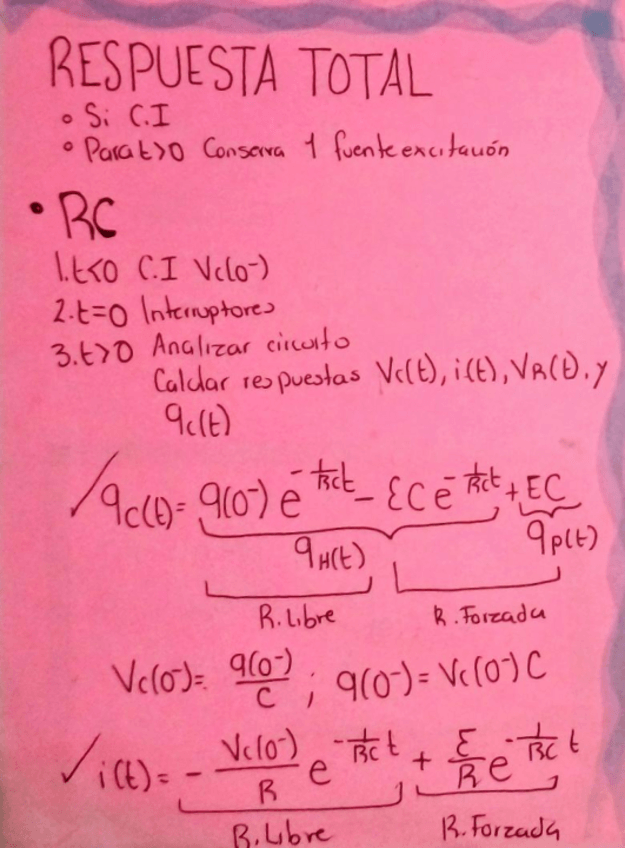 RESPUESTA TOTAL
• Si C.I
• Para t>0 Conserva 1 fuente excitación
• RC
1. t<0 C.I Vc(0⁻)
2. t=0 Interruptores
3. t>0 Analizar circuito
Calclar respuestas Vc(t), i(t), VR(t), y
qc(t)
✓ qc(t) = q(0⁻) e^(-1/RC t) - ƐC e^(-1/RC t) + EC
qH(t) qP(t)
R. Libre R. Forzada
Vc(0⁻) = q(0⁻)/C ; q(0⁻) = Vc(0⁻) C
✓ i(t) = - Vc(0⁻)/R e^(-1/RC t) + Ɛ/R e^(-1/RC t)
R. Libre R. Forzada